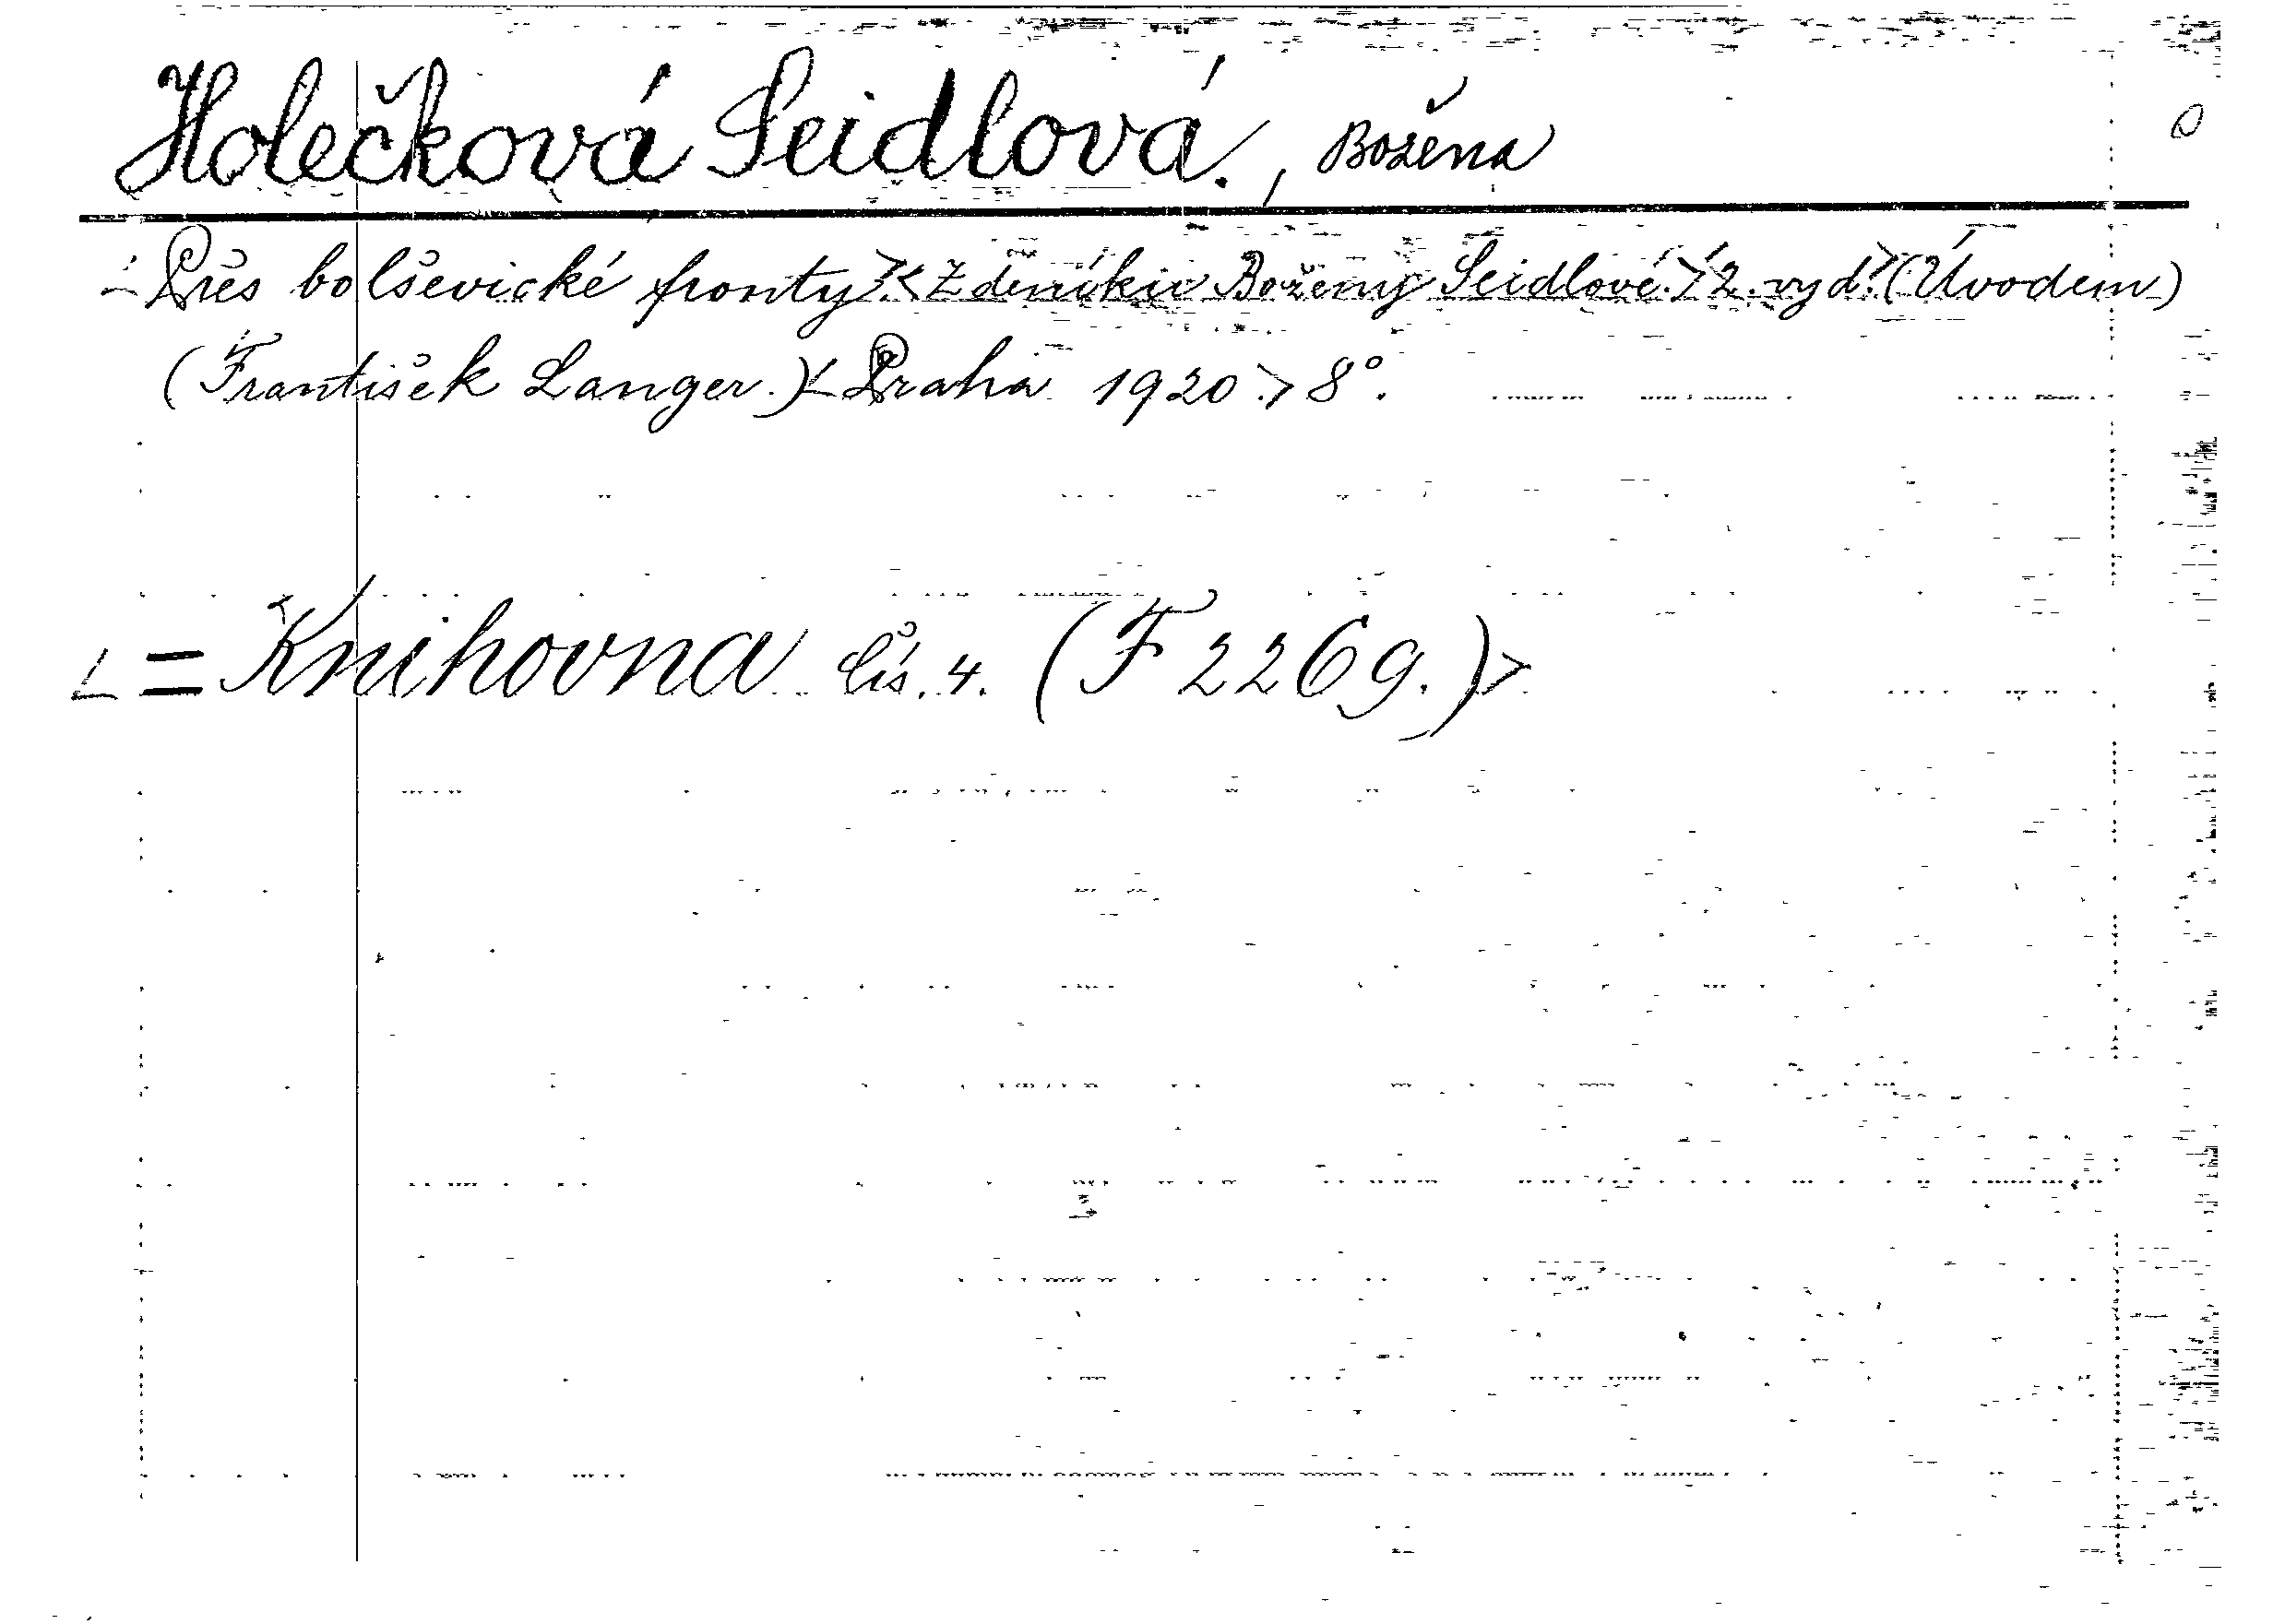 Holečková Seidlová., Božena
Přes bolševické fronty. < Z deníků Boženy Seidlové. > 2. vyd. (Úvodem)
(František Langer.) < Praha 1920. > 8°.
< = Knihovna čís. 4. (F 2269.) >